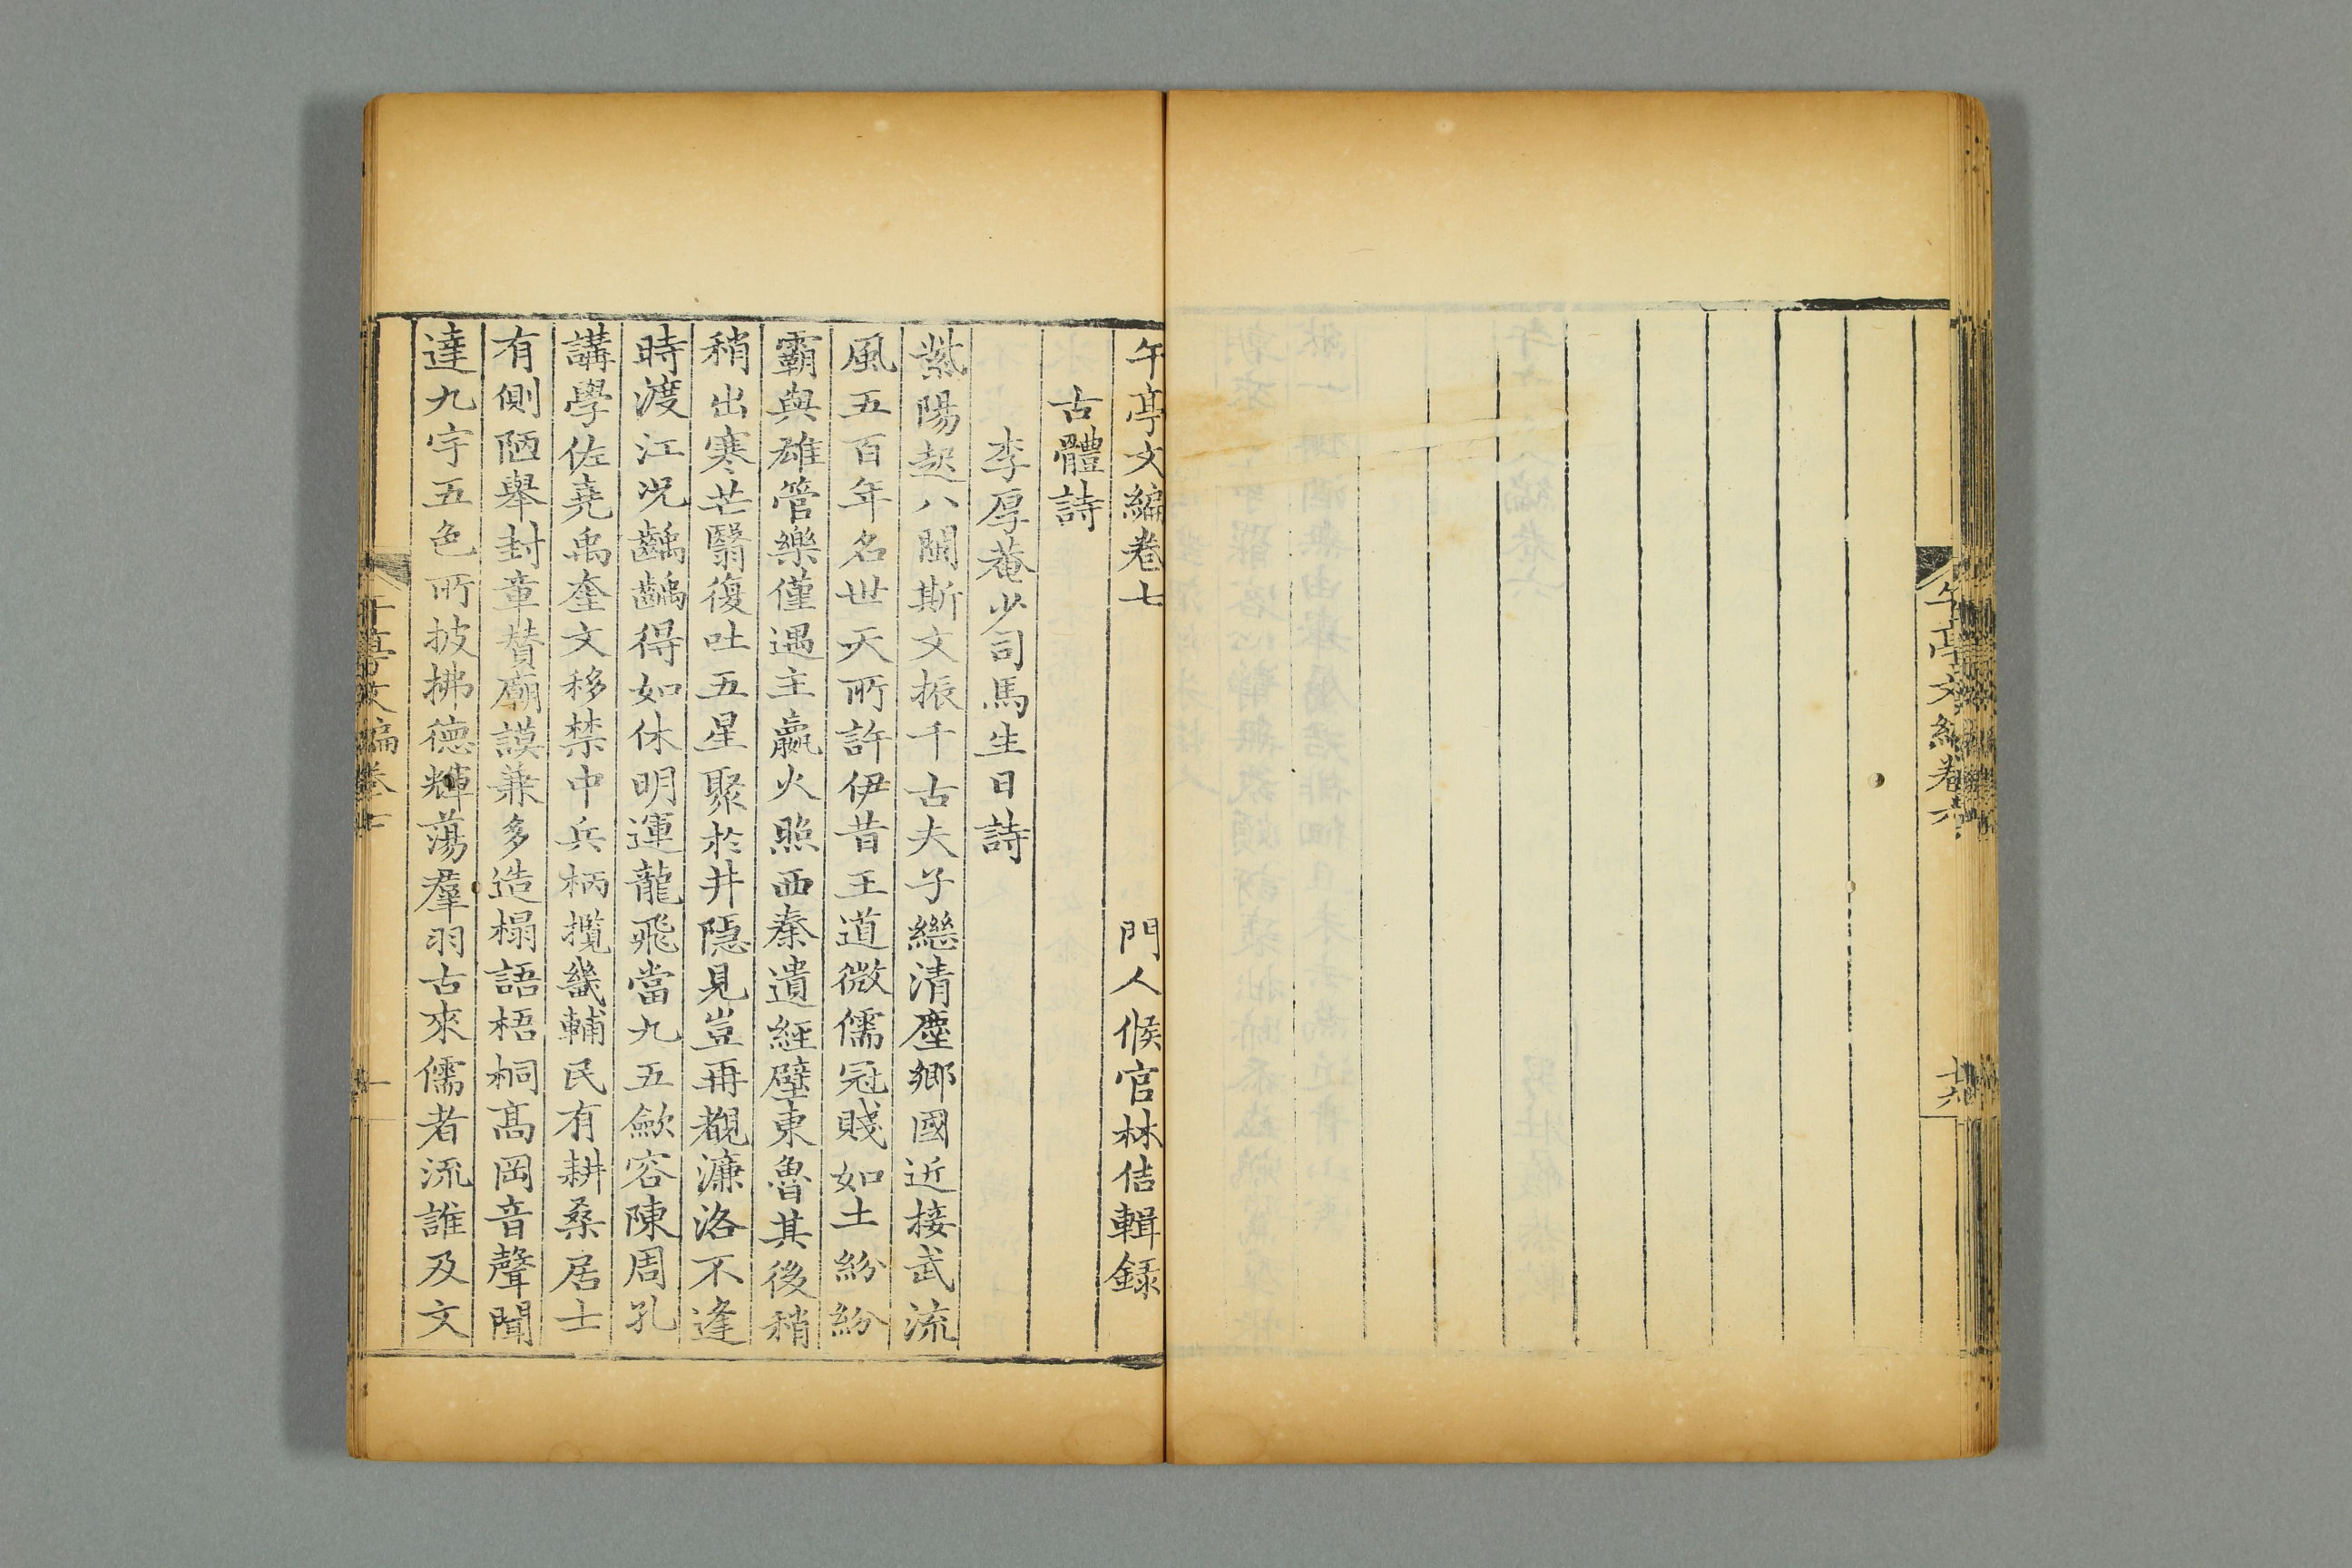 午亭文編卷六
十六
午亭文編卷七
門人候官林佶輯錄
古體詩
李厚菴少司馬生日詩
紫陽起八閩斯文振千古夫子繼清塵鄉國近接武流
風五百年名世天所許伊昔王道微儒冠賤如土紛紛
霸與雄管樂僅遇主嬴火照西秦遺經壁東魯其後稍
稍出寒芒翳復吐五星聚於井隱見豈再覩濂洛不逢
時渡江况齟齬得如休明運龍飛當九五歛容陳周孔
講學佐堯禹奎文移禁中兵柄攬畿輔民有耕桑居士
有側陋舉封章賛廟謨兼多造榻語梧桐高岡音聲聞
達九宇五色所披拂德輝蕩羣羽古來儒者流誰及文
午亭文編卷七
一